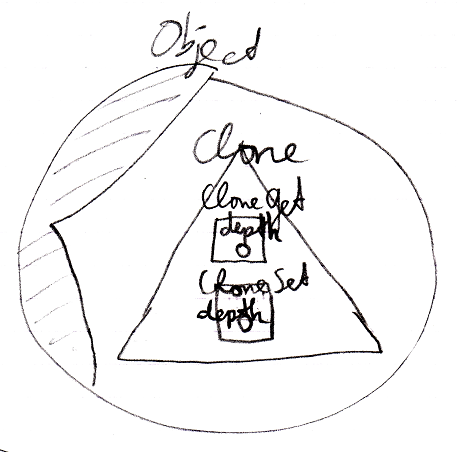 Object
Clone
Clone Get
depth
Clone Set
depth